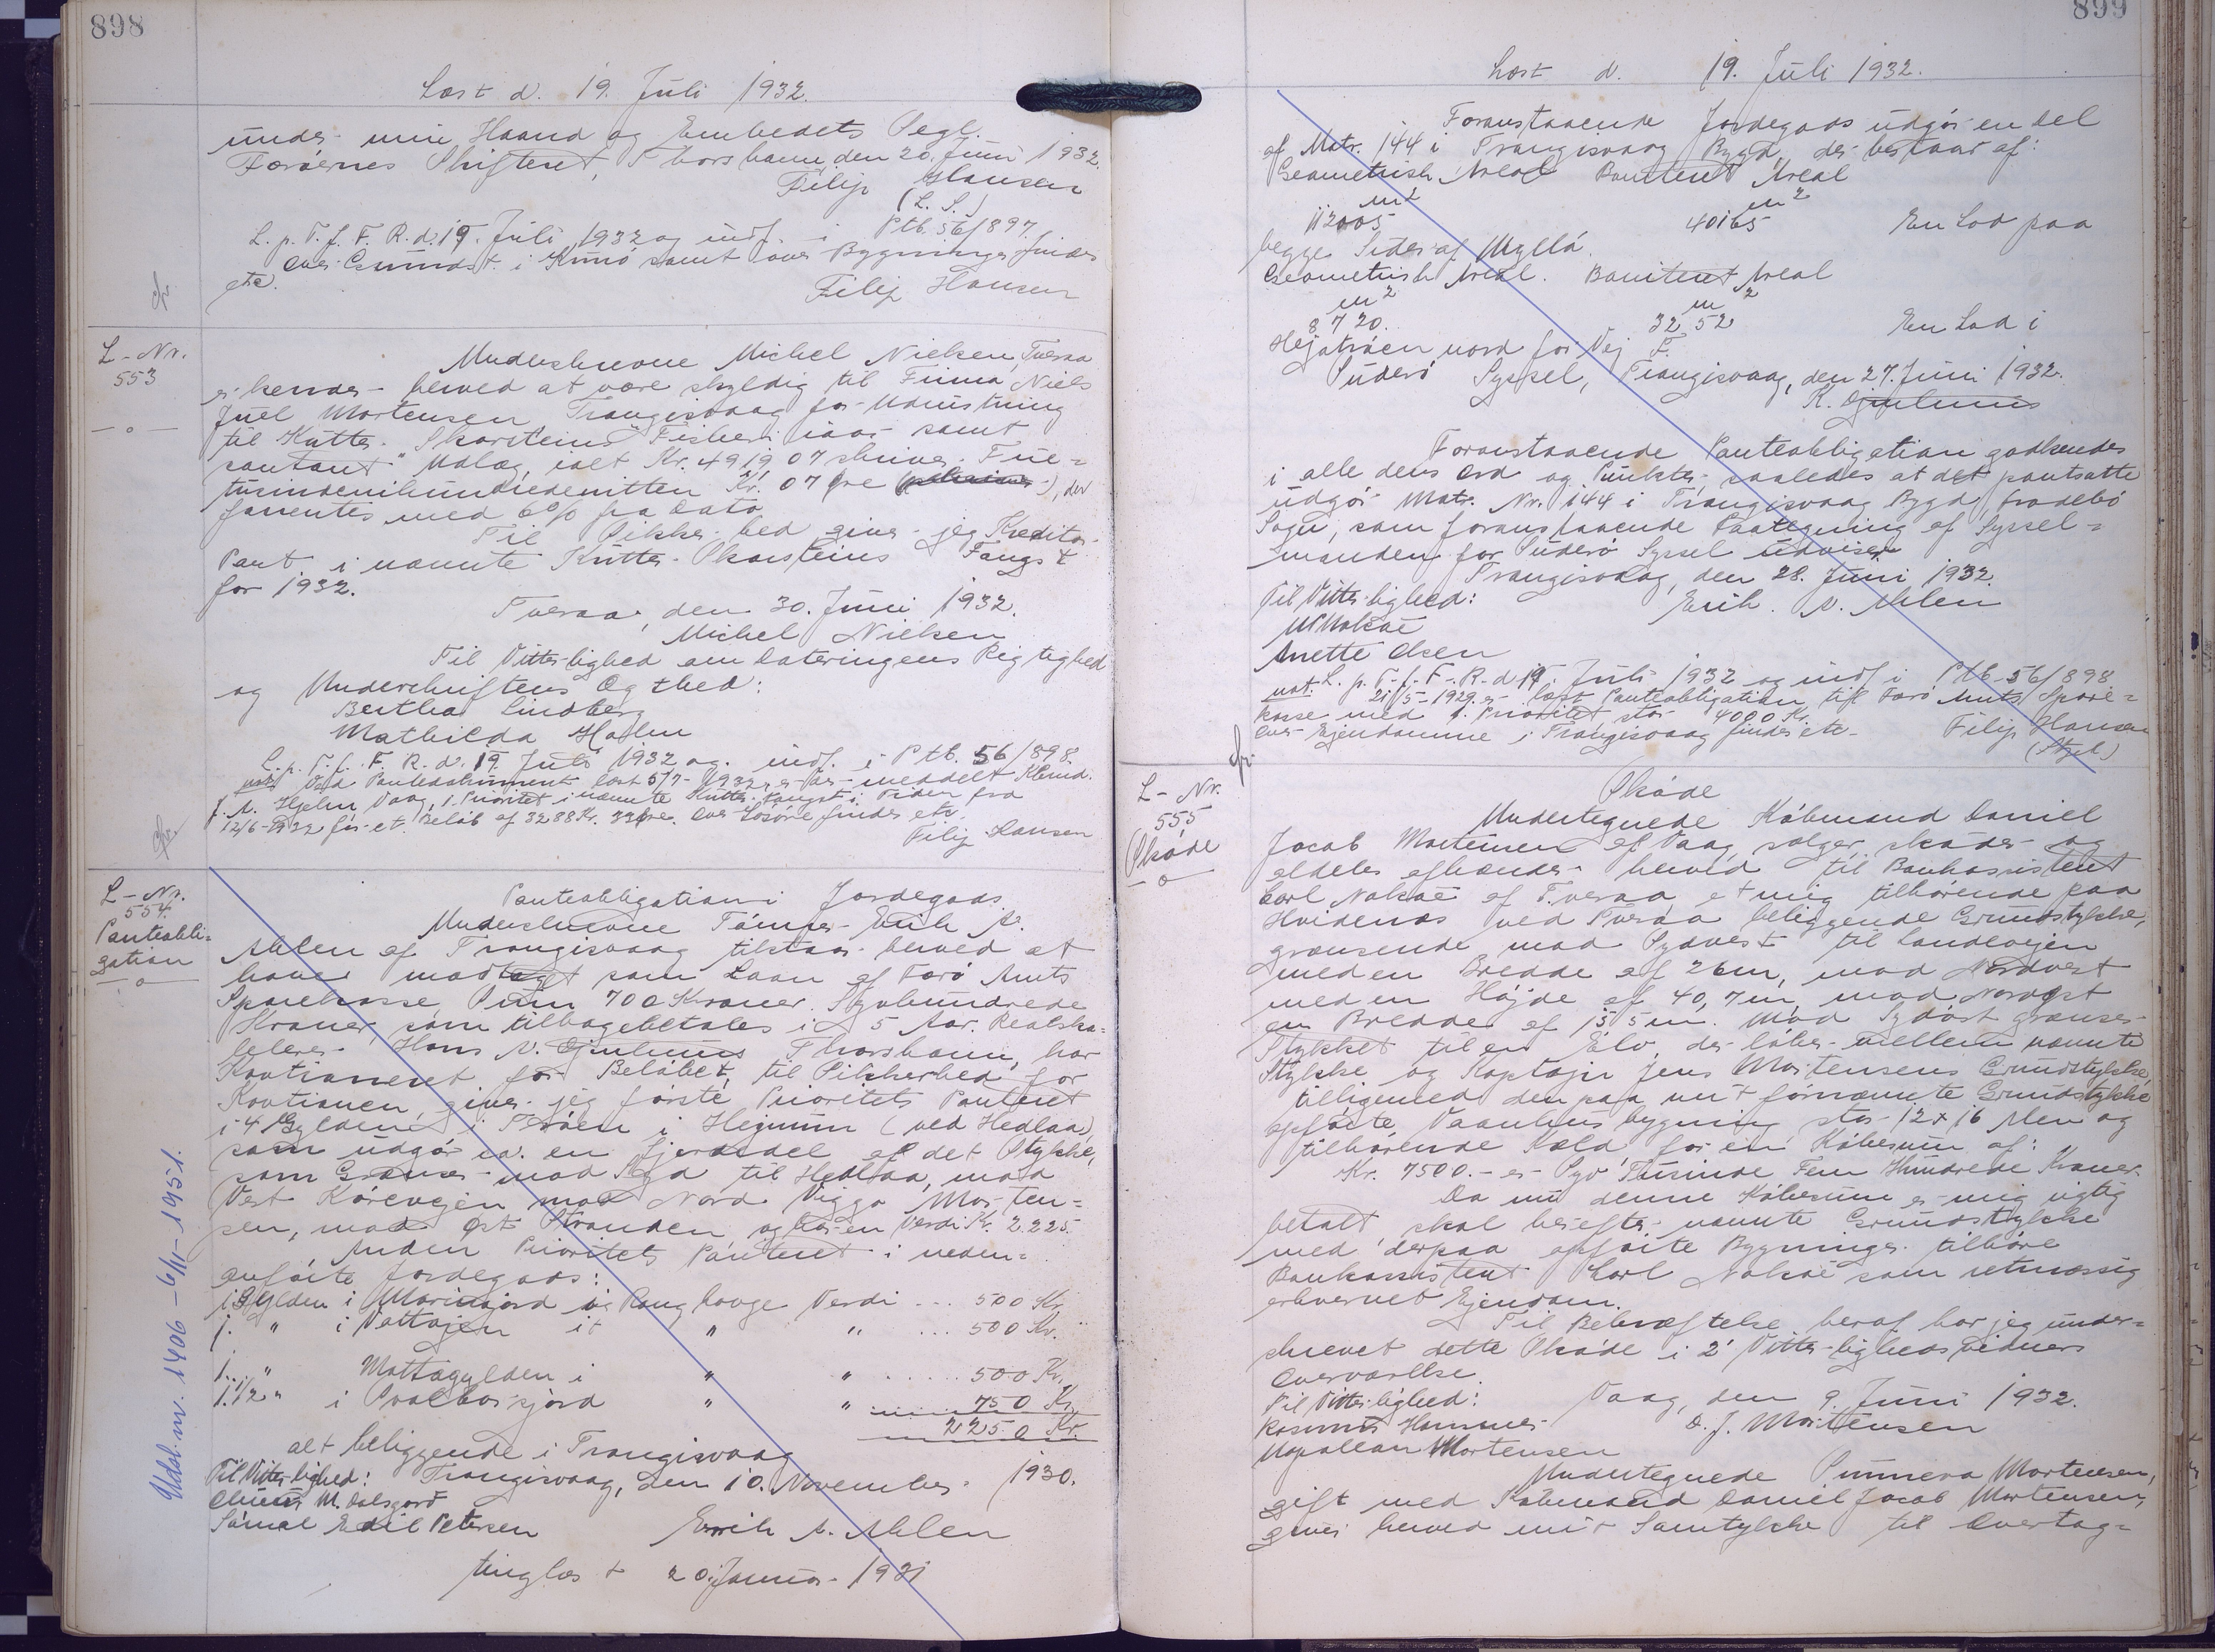 898
Læst d. 19. Juli 1932.
under min Haand og Embedets Segl.
Færøernes Skifteret, Thorshavn, den 20. Juni 1932.
Filip Hansen
(L. S.)
L. p. T. f. F. R. d. 19. Juli 1932 og indf. i Ptb. 56/897.
over Grundst. i Kunø samt over Bygninger findes
etc.
Filip Hansen
L-Nr.
553
Underskrevne Michel Nielsen, Tveraa
erkender herved at være skyldig til Firma Niels
Juel Mortensen Trangisvaag for Udrustning
til Kutter "Skarsteins" Fiskeri iaar samt
kontant Udlæg, ialt Kr. 4919 07 skriver Fire=
tusindenihundredenitten Kr. 07 Øre, der
forrentes med 6% fra Dato.
Til Sikkerhed giver jeg Kreditor
Pant i nævnte Kutter Skarsteins Fangst
for 1932.
Tveraa, den 30. Juni 1932.
Michel Nielsen
Til Vitterlighed om Dateringens Rigtighed
og Underskriftens Ægthed:
Bertha Lindberg
Mathilda Holm
L. p. T. f. F. R. d. 19. Juli 1932 og indf. i Ptb. 56/898.
not. Ved Pantedokument læst 5/7-1932, er der meddelt Købmd.
J. A. Hjelm, Vaag, 1. Prioritet i nævnte Kutters Fangst i Tiden fra
12/6-1932 for et Beløb af 3288 Kr. 33 Øre. Over Løsøre findes etc.
Filip Hansen
L-Nr.
554.
Panteobli=
gation
Panteobligation i Jordegods.
Underskrevne Tømrer Erik A.
Ahlen af Trangisvaag tilstaar herved at
have modtaget som Laan af Færø Amts
Sparekasse, Sum 700 Kroner Syvhundrede
Kroner, som tilbagebetales i 5 Aar. Realsko=
lelærer Hans N. Thorshavn, har
Kautioneret for Beløbet, til Sikkerhed for
Kautionen, giver jeg første Prioritets Panteret
i 4 Gylden i Trøen i Hejmum (ved Hedlaa)
som udgør ca. en fjerdedel af det Stykke,
som Grænser mod Syd til Hedlaa, mod
Vest Kørevejen mod Nord Viggo Morten=
sen, mod Øst Stranden og har en Værdi Kr. 2225.
Anden Prioritets Panteret i neden=
anførte Jordegods:
1 Gylden i og Rang hauge Værdi ... 500 Kr.
1. " i it " " ... 500 Kr.
1. " Mattagylden i " " ..... 500 Kr.
1.1/2 " i " " ..... 750 Kr.
2250 Kr.
alt beliggende i Trangisvaag
Til Vitterlighed: Trangisvaag, den 10. November 1930.
M. Dalsgarð
Sámal Edil Petersen Erik A. Ahlen
tinglæst 20. Januar 1931
Udsl. m. 1406 - 6/11-1951.
899
Læst d. 19. Juli 1932.
Foranstaaende Jordegods udgør en del
af Matr. 144 i Trangisvaag Bygd, der bestaar af:
Geometrisk Areal Boniteret Areal
m² m²
112005 40165 En Lod paa
begge Sider af Myllá.
Geometrisk Areal. Boniteret Areal
m² m²
8720. 3252 En Lod i
Hejatrøen nord for Vej F.
Suderø Syssel, Trangisvaag, den 27. Juni 1932.
K.
Foranstaaende Panteobligation godkendes
i alle dens Ord og Punkter, saaledes at det pantsatte
udgør Matr. Nr. 144 i Trangisvaag Bygd, Frodebø
Sogn, som foranstaaende Paategning af Syssel=
manden for Suderø Syssel udviser
Trangisvaag, den 28. Juni 1932.
Til Vitterlighed: Erik A. Ahlen
Anette Olsen
L. p. T. f. F. R. d. 19. Juli 1932 og indf. i Ptb. 56/898
not. 21/5-1929 er læst Panteobligation til Færø Amts Spare=
kasse med 1. Prioritet stor 4000 Kr.
Over Ejendomme i Trangisvaag findes etc. Filip Hansen
L-Nr.
555
Skøde
Skøde
Undertegnede Købmand Daniel
Jacob Mortensen af Vaag sælger, skøder og
aldeles afhænder herved til Bankassistent
Carl Nolsøe af Tveraa, et mig tilhørende paa
Hvidenæs ved Tveraa beliggende Grundstykke,
grænsende mod Sydvest til Landevejen
med en Bredde af 26 m, mod Nordvest
med en Højde af 40,7 m, mod Nordøst
en Bredde af 15 5 m. Mod Sydøst grænser
Stykket til en Elv, der løber mellem nævnte
Stykke og Kaptajn Jens Mortensens Grundstykke,
tilligemed den paa mit førnævnte Grundstykke
opførte Vaanhusbygning stor 12 x 16 Alen og
tilhørende Kæld, for en Købesum af:
Kr. 7500.- er Syv Tusinde Fem Hundrede Kroner.
Da nu denne Købesum er mig rigtig
betalt, skal herefter nævnte Grundstykke
med derpaa opførte Bygninger tilhøre
Bankassistent Carl Nolsøe som retmæssig
erhvervet Ejendom.
Til Bekræftelse heraf har jeg under=
skrevet dette Skøde i 2 Vitterlighedsvidners
Overværelse.
Til Vitterlighed: Vaag, den 9. Juni 1932.
Rasmus Hammer D. J. Mortensen
Napolean Mortensen
Undertegnede Sunneva Mortensen,
gift med Købmand Daniel Jacob Mortensen,
giver herved mit Samtykke til Overtag=